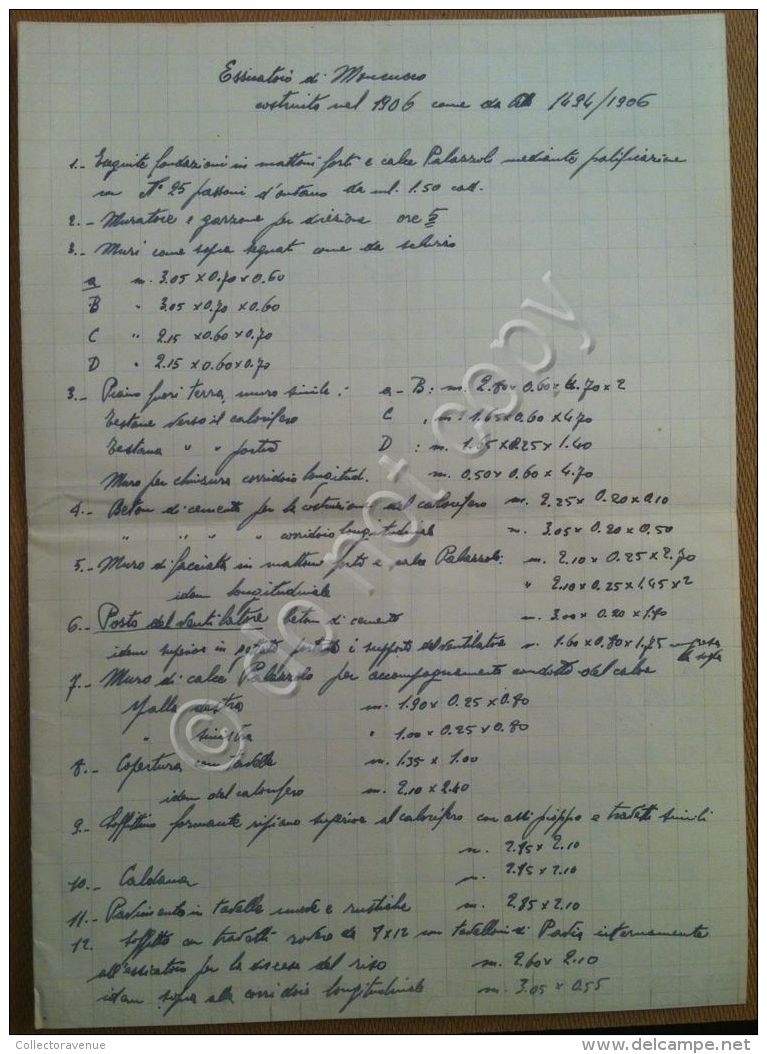 Essicatoio di Moncucco
costruito nel 1906 come da 1494/1906
1.- Eseguite fondazioni in mattoni forti e calce Palazzolo mediante palificazione
con N° 25 passoni d'ontano da ml. 1.50 cad.
2.- Muratore e garzone per direzione ore 5
3.- Muri come sopra segnati come da schizzo
a m. 3.05 x 0.70 x 0.60
B " 3.05 x 0.70 x 0.60
C " 2.15 x 0.60 x 0.70
D " 2.15 x 0.60 x 0.70
3.- Piano fuori terra, muro simile: a-B: m. 2.80 x 0.60 x 4.70 x 2
Testana verso il calorifero C : m. 1.65 x 0.60 x 4.70
Testana " " portico D : m. 1.65 x 0.25 x 1.40
Muro per chiusura corridoio longitud. m. 0.50 x 0.60 x 4.70
4.- Beton di cemento per la costruzione del calorifero m. 2.25 x 0.20 x 0.10
" " " " corridoio longitudinale m. 3.05 x 0.20 x 0.50
5.- Muro di facciata in mattone forte e calce Palazzolo: m. 2.10 x 0.25 x 2.70
idem longitudinale " 2.10 x 0.25 x 1.45 x 2
6.- Posto del ventilatore beton di cemento m. 3.00 x 0.20 x 1.90
idem superiore in portante i supporti del ventilatore m. 1.60 x 0.80 x 1.75 compresa
la sopra
7.- Muro di calce Palazzolo per accompagnamento condotto del calore
Spalla destra m. 1.90 x 0.25 x 0.80
" sinistra " 1.00 x 0.25 x 0.80
8.- Copertura con tavelle m. 1.35 x 1.00
idem del calorifero m. 2.10 x 2.40
9.- Soffittino formante ripiano superiore al calorifero con assi pioppo e travetti simili
m. 2.95 x 2.10
10.- Caldana m. 2.95 x 2.10
11.- Pavimento in tavelle umide e rustiche m. 2.85 x 2.10
12. Soffitto con travetti rovere da 9x12 con tavelloni di Pavia internamente
all'essicatoio per la discesa del riso m. 2.60 x 2.10
idem sopra alla corridoio longitudinale m. 3.05 x 0.55
© do not copy
Collectoravenue
www.delcampe.net